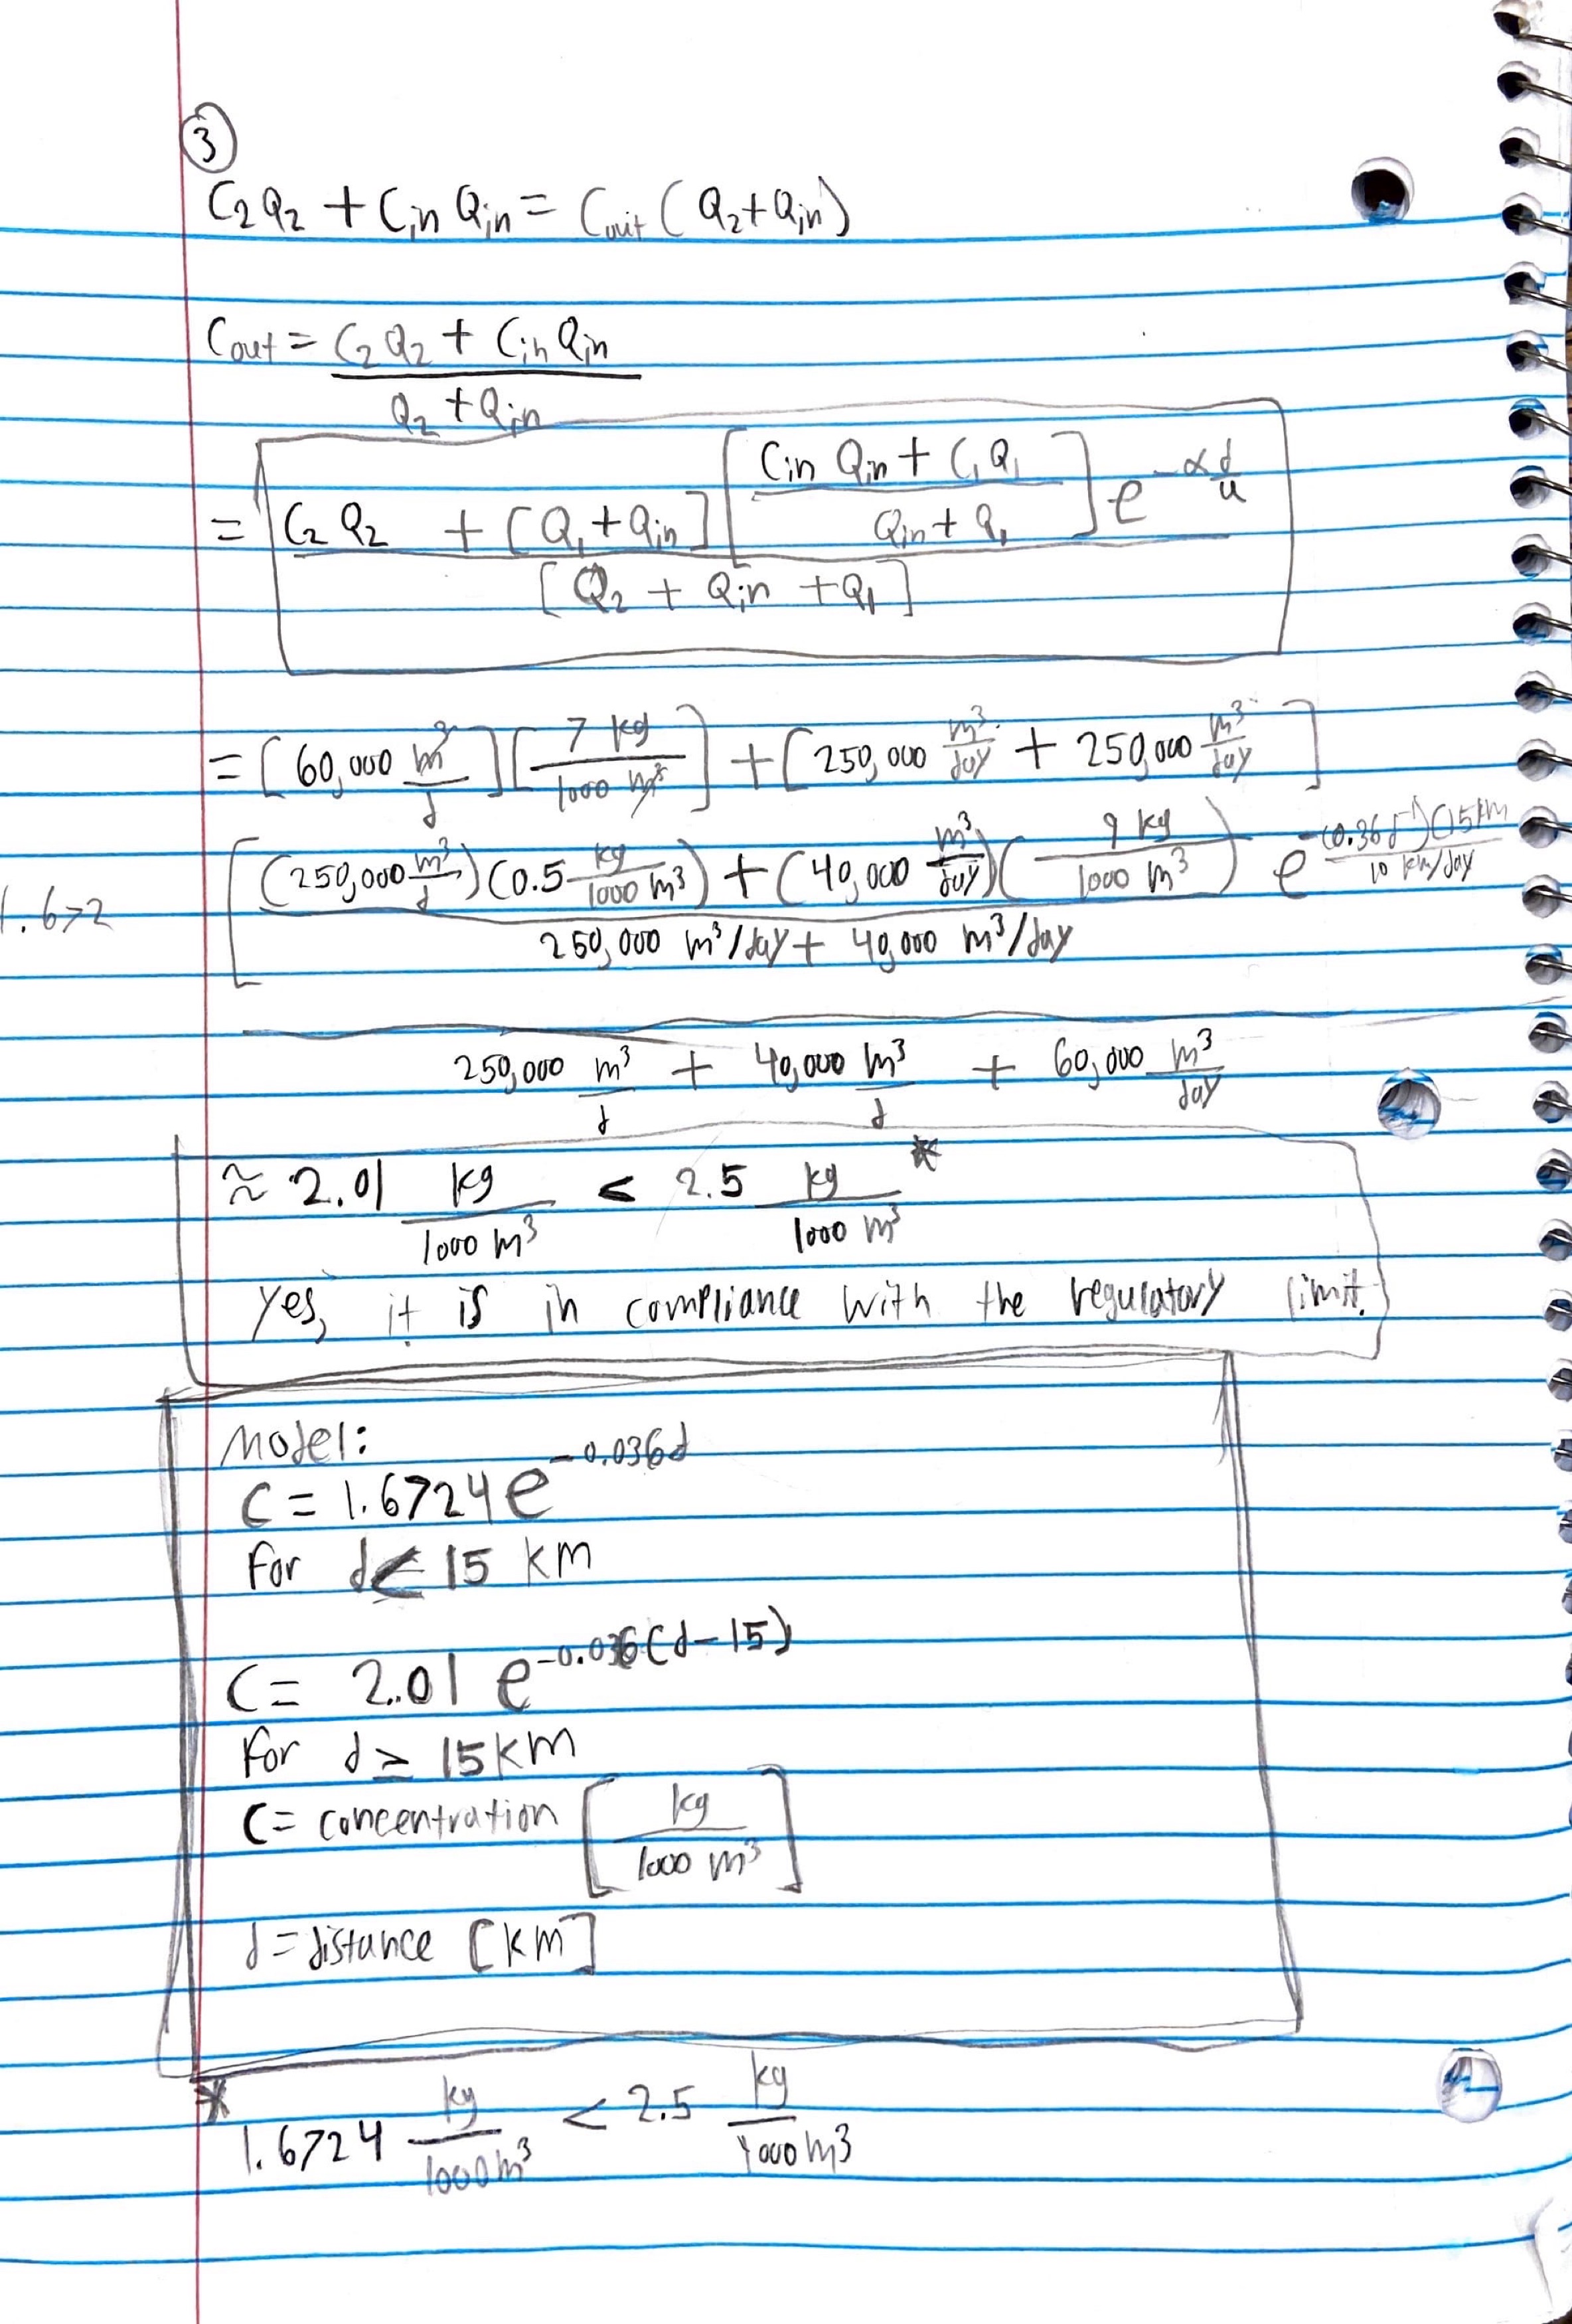 ③
C₂Q₂ + Cin Qin = Cout (Q₂+Qin)
Cout = C₂Q₂ + Cin Qin
Q₂ + Qin
= C₂ Q₂ + [Q₁ + Qin] [ Cin Qin + C₁Q₁ / Qin + Q₁ ] e^(-α d/u)
[Q₂ + Qin + Q₁]
= [60,000 m³/d] [7 kg / 1000 m³] + [250,000 m³/day + 250,000 m³/day]
[ (250,000 m³/d) (0.5 kg/1000 m³) + (40,000 m³/day) (9 kg / 1000 m³) e^(-(0.36 d⁻¹)(15 km / 10 km/day)
1.672
250,000 m³/day + 40,000 m³/day
250,000 m³/d + 40,000 m³/d + 60,000 m³/day
≈ 2.01 kg/1000 m³ < 2.5 kg/1000 m³ *
Yes, it is in compliance with the regulatory limit.
Model:
C = 1.6724 e^(-0.036d)
For d < 15 km
C = 2.01 e^(-0.036(d-15))
For d ≥ 15 km
C = concentration [kg / 1000 m³]
d = distance [km]
* 1.6724 kg/1000 m³ < 2.5 kg/1000 m³